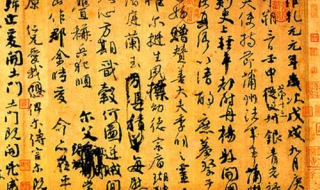 乾元元年歲次戊戌九月庚
朔三日壬申第十三銀青光祿
夫使持節蒲州諸軍事蒲州
刺史上輕車都尉丹陽縣開國
侯真卿以清酌庶羞祭
姪贈贊善大夫季明
惟爾挺生夙標幼德宗廟瑚璉
階庭蘭玉每慰
人心方期戩穀何圖逆賊閒
釁稱兵犯順
爾父
山作郡余時受命亦在平
原仁兄愛我俾爾傳言爾既
歸止爰開土門土門既開兇威